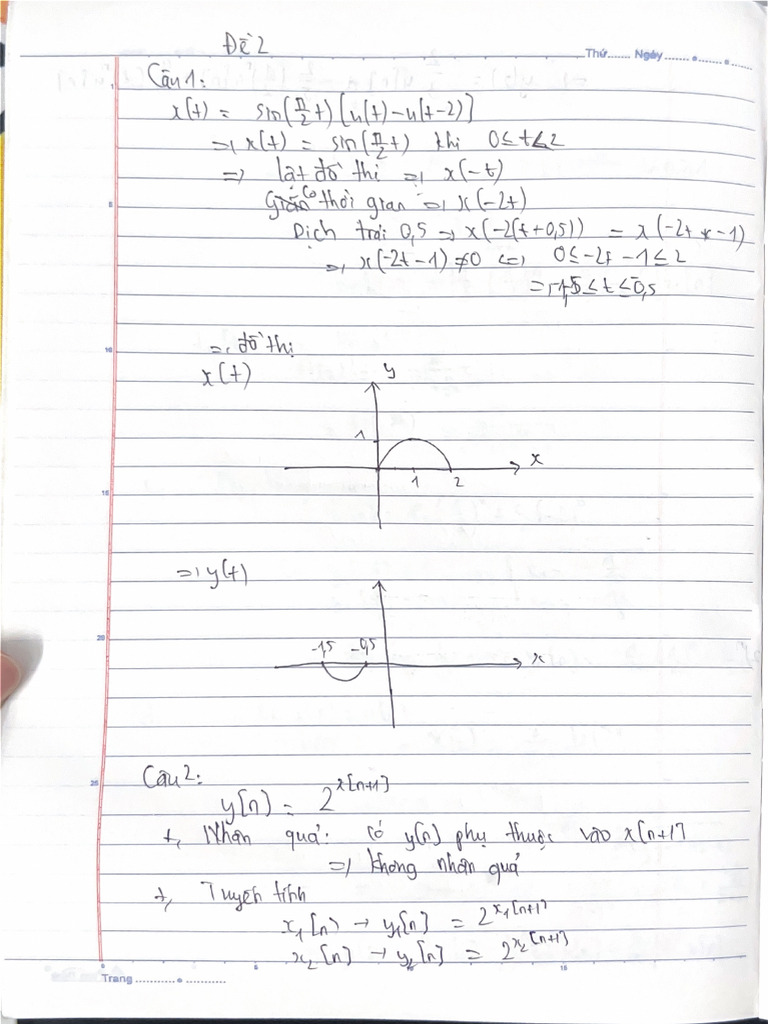 Đề 2
Thứ...... Ngày ......•......•......
Câu 1:
x(t) = sin(π/2 t) [u(t) - u(t-2)]
=> x(t) = sin(π/2 t) khi 0 ≤ t ≤ 2
=> lật đồ thị => x(-t)
Co thời gian => x(-2t)
5
Dịch trái 0,5 => x(-2(t+0,5)) = x(-2t - 1)
=> x(-2t-1) ≠ 0 <=> 0 ≤ -2t - 1 ≤ 2
=> -1,5 ≤ t ≤ -0,5
10
=> đồ thị
x(t)
y
1
x
1 2
15
=> y(t)
20
-1,5 -0,5
x
25
Câu 2:
y[n] = 2^x[n+1]
+, Nhân quả: có y[n] phụ thuộc vào x[n+1]
=> không nhân quả
+, Tuyến tính
x1[n] → y1[n] = 2^x1[n+1]
x2[n] → y2[n] = 2^x2[n+1]
0 5 10 15
Trang ...........•...........